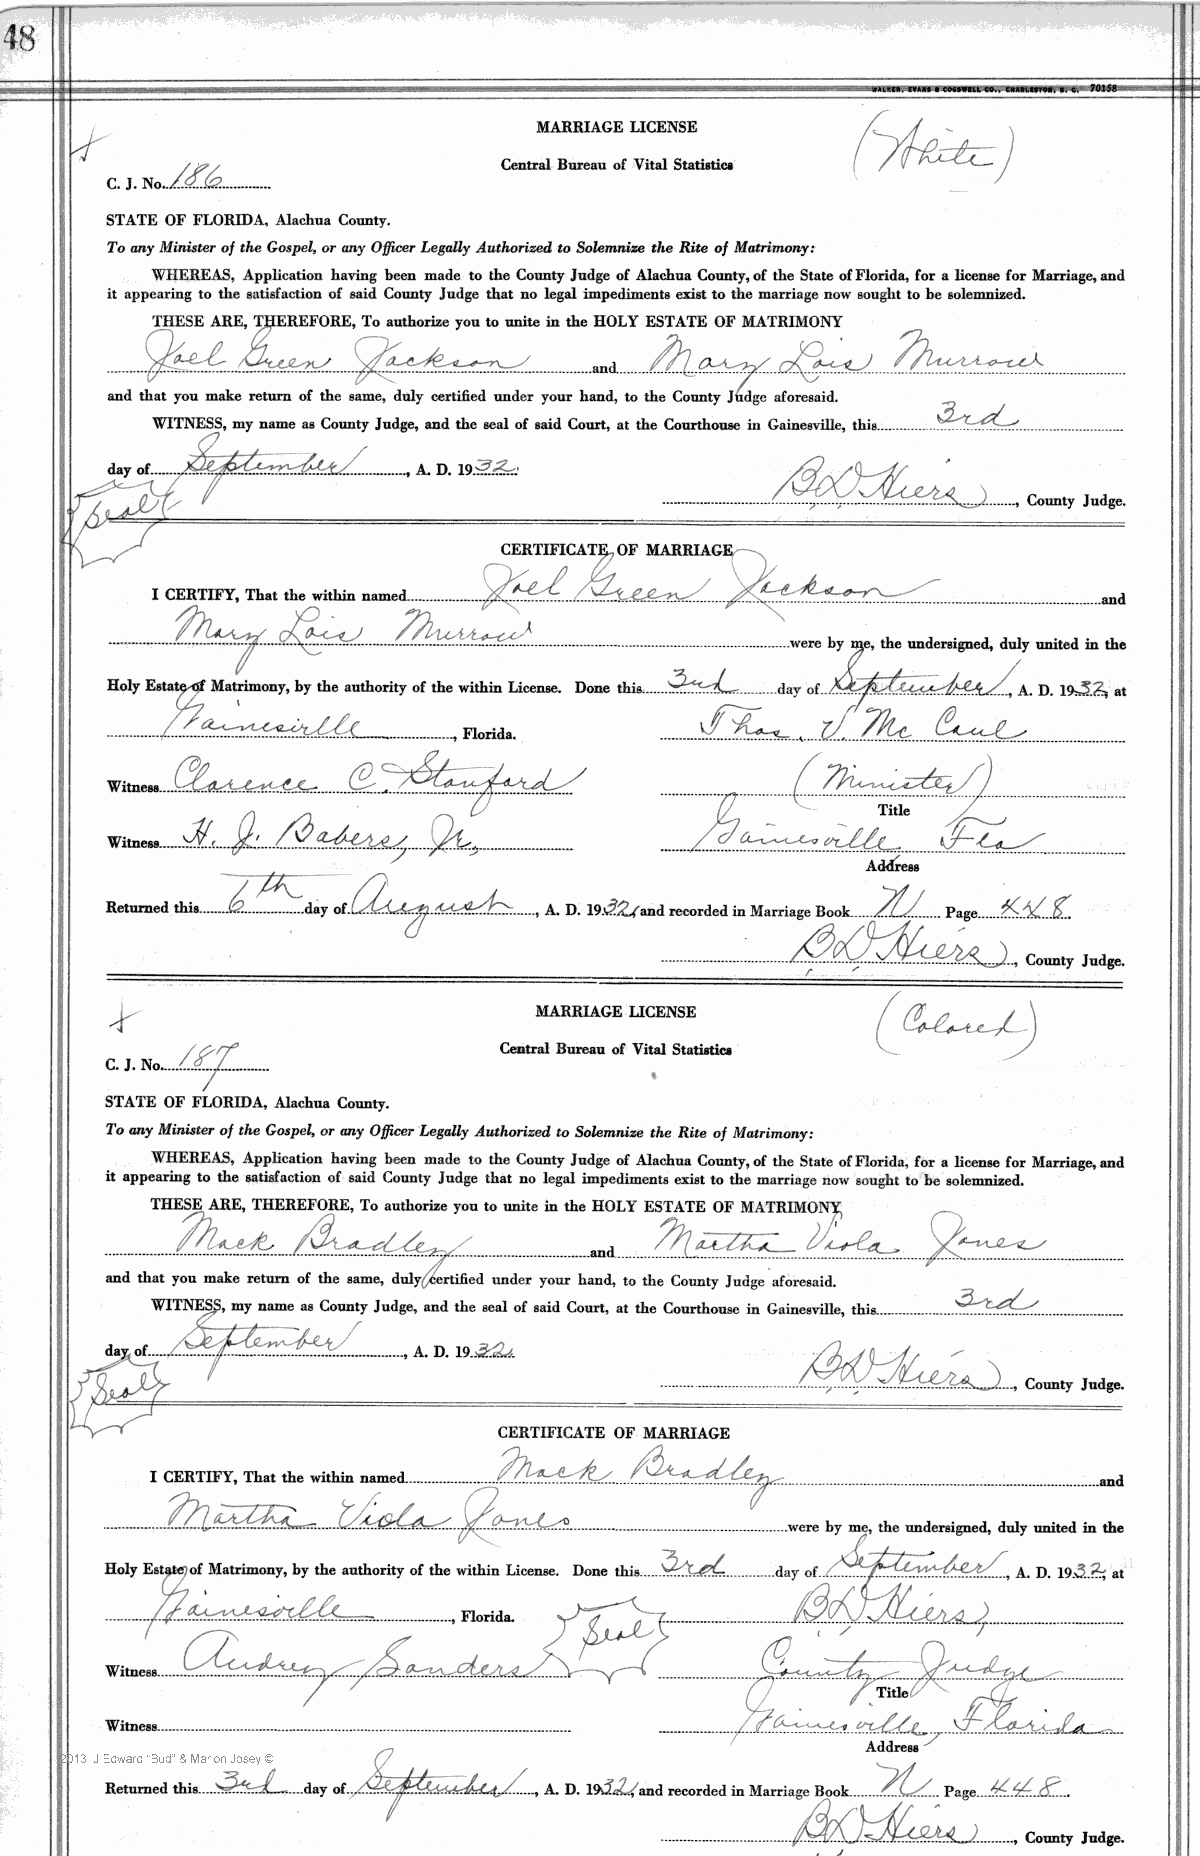 48
WALKER, EVANS & COGSWELL CO., CHARLESTON, S. C. 70158
MARRIAGE LICENSE
(White)
Central Bureau of Vital Statistics
C. J. No. 186
STATE OF FLORIDA, Alachua County.
To any Minister of the Gospel, or any Officer Legally Authorized to Solemnize the Rite of Matrimony:
WHEREAS, Application having been made to the County Judge of Alachua County, of the State of Florida, for a license for Marriage, and
it appearing to the satisfaction of said County Judge that no legal impediments exist to the marriage now sought to be solemnized.
THESE ARE, THEREFORE, To authorize you to unite in the HOLY ESTATE OF MATRIMONY
Joel Green Jackson and Mary Lois Murrow
and that you make return of the same, duly certified under your hand, to the County Judge aforesaid.
WITNESS, my name as County Judge, and the seal of said Court, at the Courthouse in Gainesville, this 3rd
day of September, A. D. 1932.
Seal
B D Hiers, County Judge.
CERTIFICATE OF MARRIAGE
I CERTIFY, That the within named Joel Green Jackson and
Mary Lois Murrow were by me, the undersigned, duly united in the
Holy Estate of Matrimony, by the authority of the within License. Done this 3rd day of September, A. D. 1932, at
Gainesville, Florida. Thos. V. McCaul
Witness Clarence C. Stanford (Minister)
Title
Witness H. J. Babers, Jr., Gainesville Fla
Address
Returned this 6th day of August, A. D. 1932, and recorded in Marriage Book N Page 448.
B D Hiers, County Judge.
MARRIAGE LICENSE
(Colored)
Central Bureau of Vital Statistics
C. J. No. 187
STATE OF FLORIDA, Alachua County.
To any Minister of the Gospel, or any Officer Legally Authorized to Solemnize the Rite of Matrimony:
WHEREAS, Application having been made to the County Judge of Alachua County, of the State of Florida, for a license for Marriage, and
it appearing to the satisfaction of said County Judge that no legal impediments exist to the marriage now sought to be solemnized.
THESE ARE, THEREFORE, To authorize you to unite in the HOLY ESTATE OF MATRIMONY
Mack Bradley and Martha Viola Jones
and that you make return of the same, duly certified under your hand, to the County Judge aforesaid.
WITNESS, my name as County Judge, and the seal of said Court, at the Courthouse in Gainesville, this 3rd
day of September, A. D. 1932.
Seal
B D Hiers, County Judge.
CERTIFICATE OF MARRIAGE
I CERTIFY, That the within named Mack Bradley and
Martha Viola Jones were by me, the undersigned, duly united in the
Holy Estate of Matrimony, by the authority of the within License. Done this 3rd day of September, A. D. 1932, at
Gainesville, Florida. Seal B D Hiers,
Witness Audrey Sanders County Judge
Title
Witness Gainesville, Florida
Address
2013 J Edward "Bud" & Marion Josey ©
Returned this 3rd day of September, A. D. 1932, and recorded in Marriage Book N Page 448.
B D Hiers, County Judge.